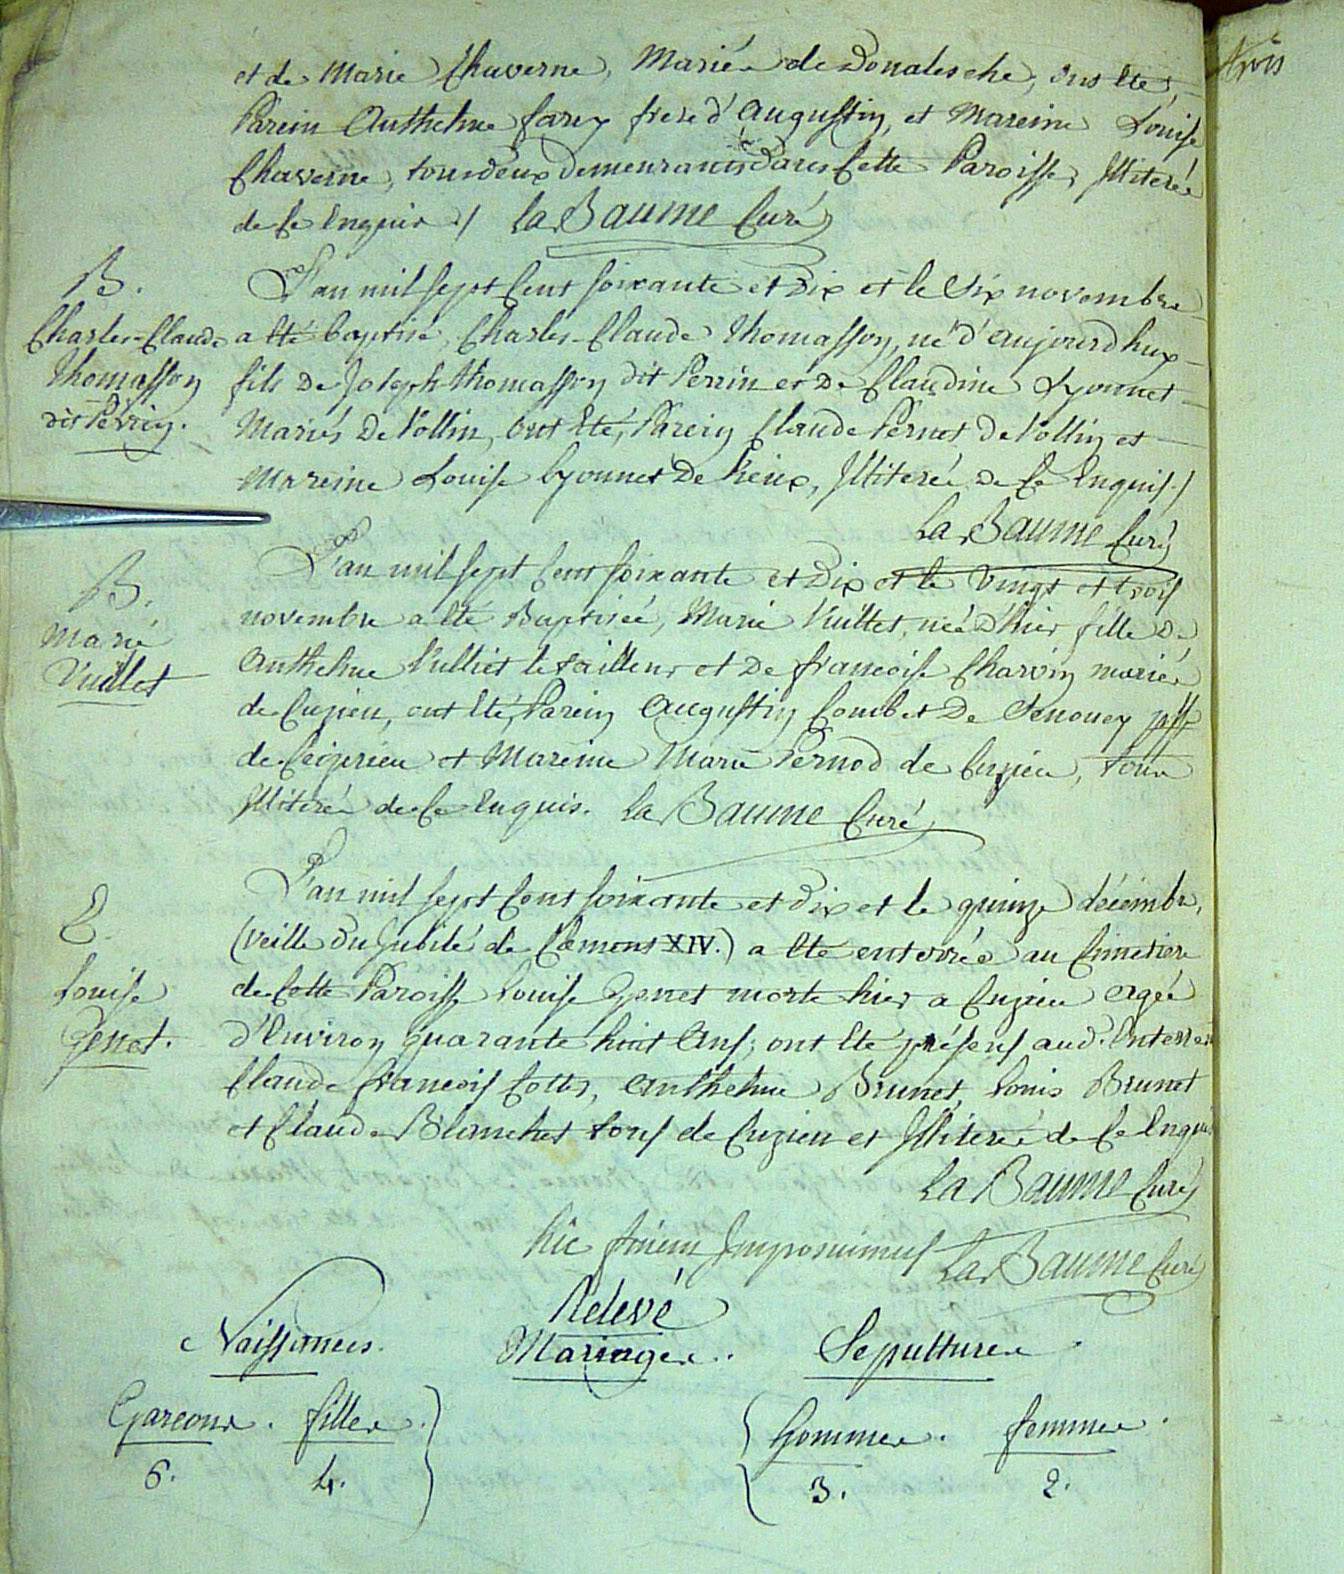 et de Marie Chaverne, Mariés de Donalesche, ont été,
Parein Anthelme farey frere d'Augustin, et Mareine Louise
Chaverne, tous deux demeurants dans Cette Paroisse, Illiterés
de Ce Enquis / La Baume Curé
B.
L'an mil sept Cent soixante et Dix et le Six novembre
Charles-Claude
a été baptisé, Charles-Claude Thomasson, né d'aujourdhuy
Thomasson
fils de Joseph Thomasson dit Perrin et De Claudine Lyonnet
dit Perrin.
Mariés De Vollin, ont été, Parein Claude Pernot de Vollin et
Mareine Louise Lyonnet De hieux, Illiterés de Ce Enquis /
La Baume Curé
L'an mil sept Cent soixante et Dix et le Vingt et trois
B.
novembre a été Baptisée, Marie Vuillet, née d'hier fille De
Marie
Anthelme Vulliet le tailleur et De francoise Charvin mariés
Vuillet
de Cuzieu, ont été, Parein Augustin Combet De
de Ceizerieu et Mareine Marie Pernod de Cuzieu, tous
Illiterés de Ce Enquis. La Baume Curé
L'an mil sept Cent soixante et dix et le quinze décembre,
E.
(Veille du Jubilé de Clemens XIV.) a été enterrée au Cimetiere
Louise
de Cette Paroisse Louise Genet morte hier a Cuzieu agée
Genet.
d'Environ quarante huit Ans; ont été présens aud. Enterrem
Claude francois Cottes, Anthelme Brunet, Louis Brunet
et Claude Blanchet tous de Cuzieu et Illiterés de Ce Enquis
La Baume Curé
hic finem Imposuimus La Baume Curé
Relevé
Naissances. Mariages. Sepultures.
Garcons. filles. hommes. femmes.
6. 4. 3. 2.
trois